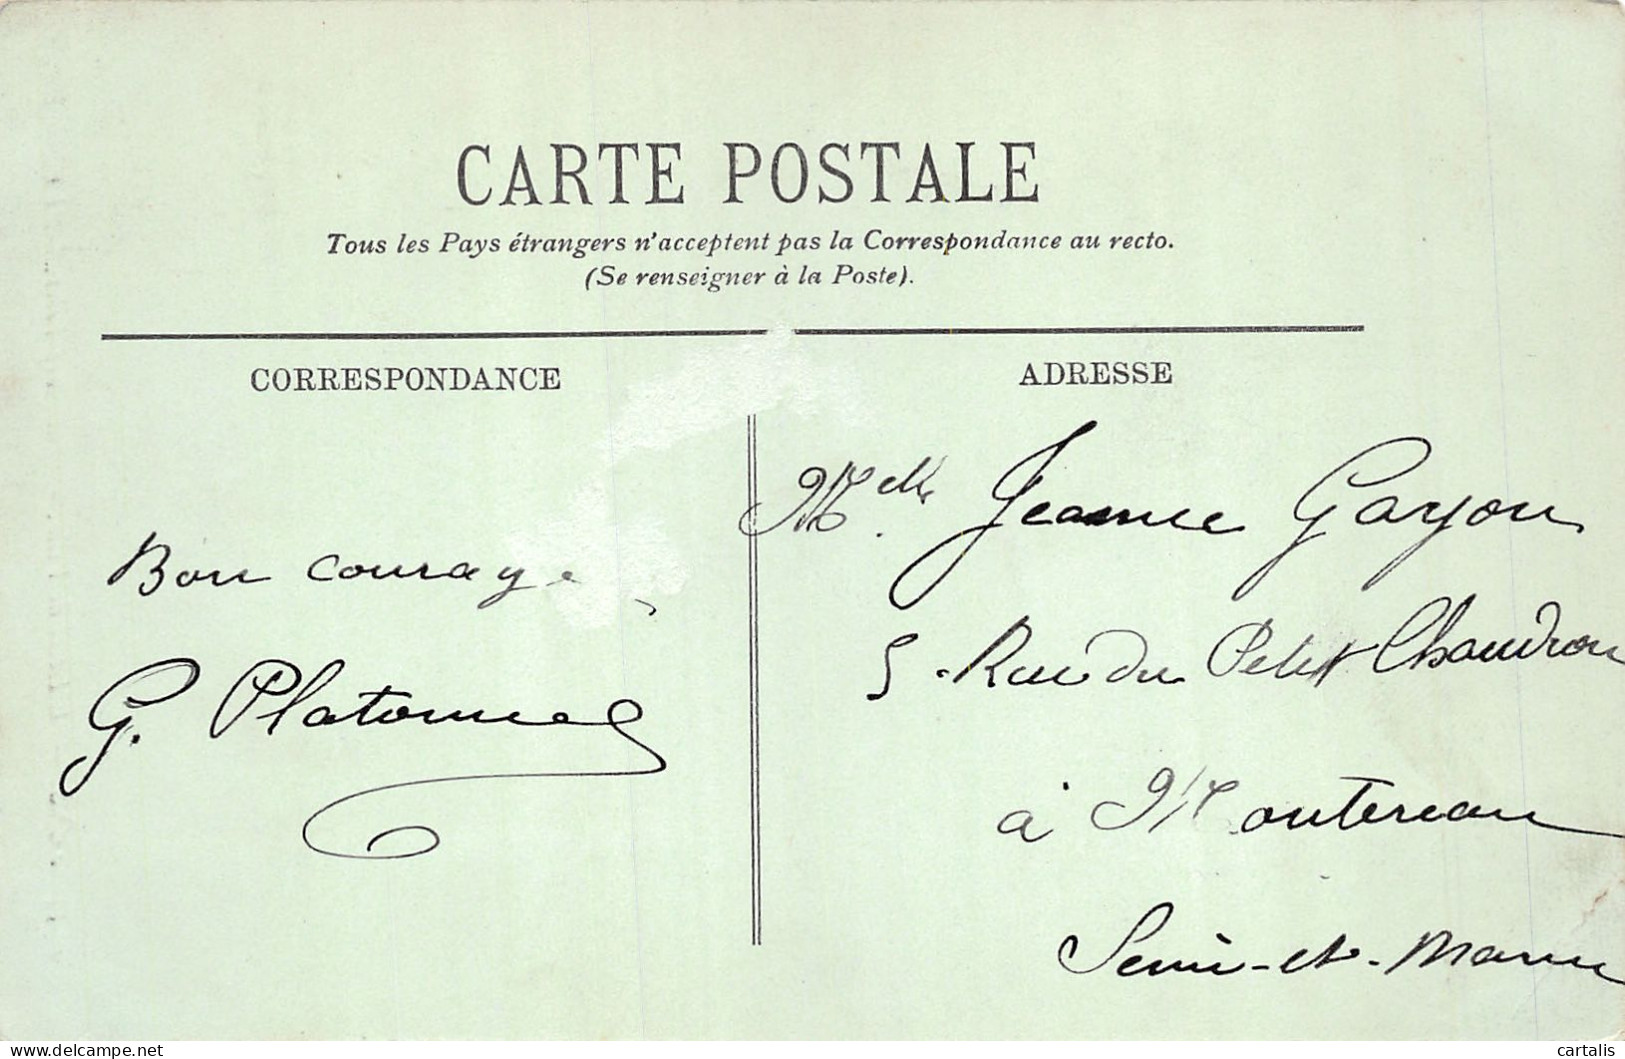 CARTE POSTALE
Tous les Pays étrangers n'acceptent pas la Correspondance au recto.
(Se renseigner à la Poste).
CORRESPONDANCE
ADRESSE
Bon courage
G.
Melle Jeanne Gayou
5 - Rue du Petit Chaudron
à Montereau
Seine-et-Marne
www.delcampe.net
cartalis